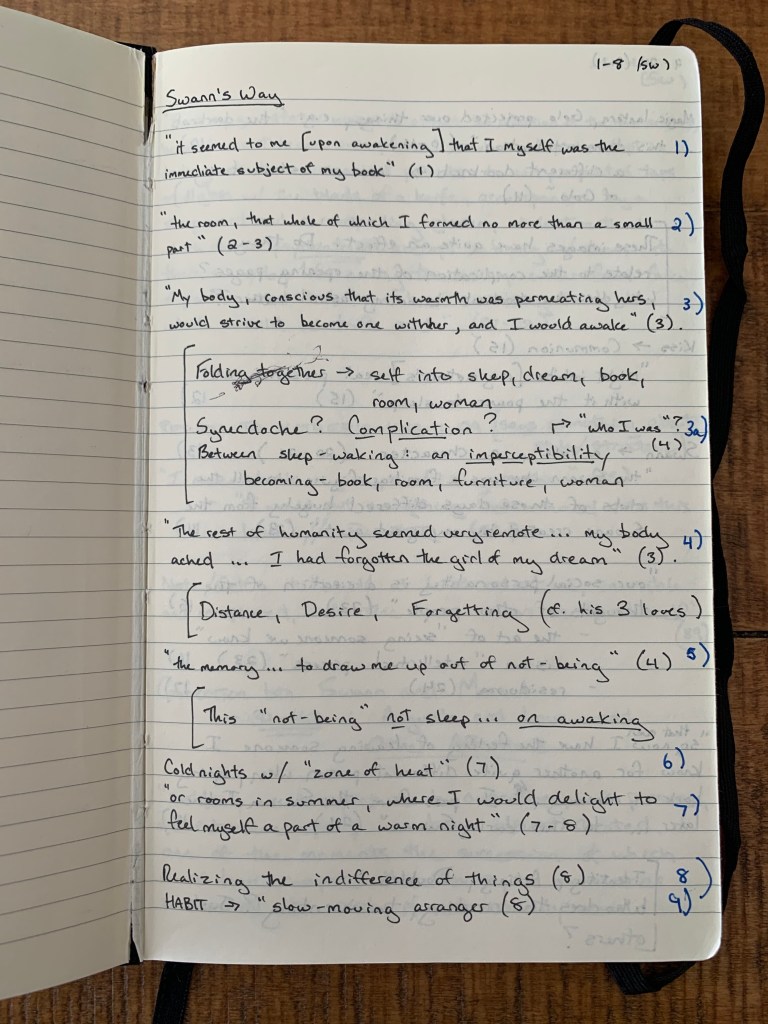 1-8 (SW)
Swann's Way
"it seemed to me [upon awakening] that I myself was the 1)
immediate subject of my book" (1)
"the room, that whole of which I formed no more than a small 2)
part" (2-3)
"My body, conscious that its warmth was permeating hers, 3)
would strive to become one with her, and I would awake" (3).
Folding together → self into sleep, dream, book,
room, woman
Synecdoche? Complication? → "who I was"? 3a)
(4)
Between sleep-waking: an imperceptibility
becoming-book, room, furniture, woman
"The rest of humanity seemed very remote ... my body 4)
ached ... I had forgotten the girl of my dream" (3).
Distance, Desire, Forgetting (cf. his 3 loves)
"the memory ... to draw me up out of not-being" (4) 5)
This "not-being" not sleep ... on awaking
Cold nights w/ "zone of heat" (7) 6)
"or rooms in summer, where I would delight to 7)
feel myself a part of a warm night" (7-8)
Realizing the indifference of things (8) 8)
HABIT → "slow-moving arranger (8) 9)